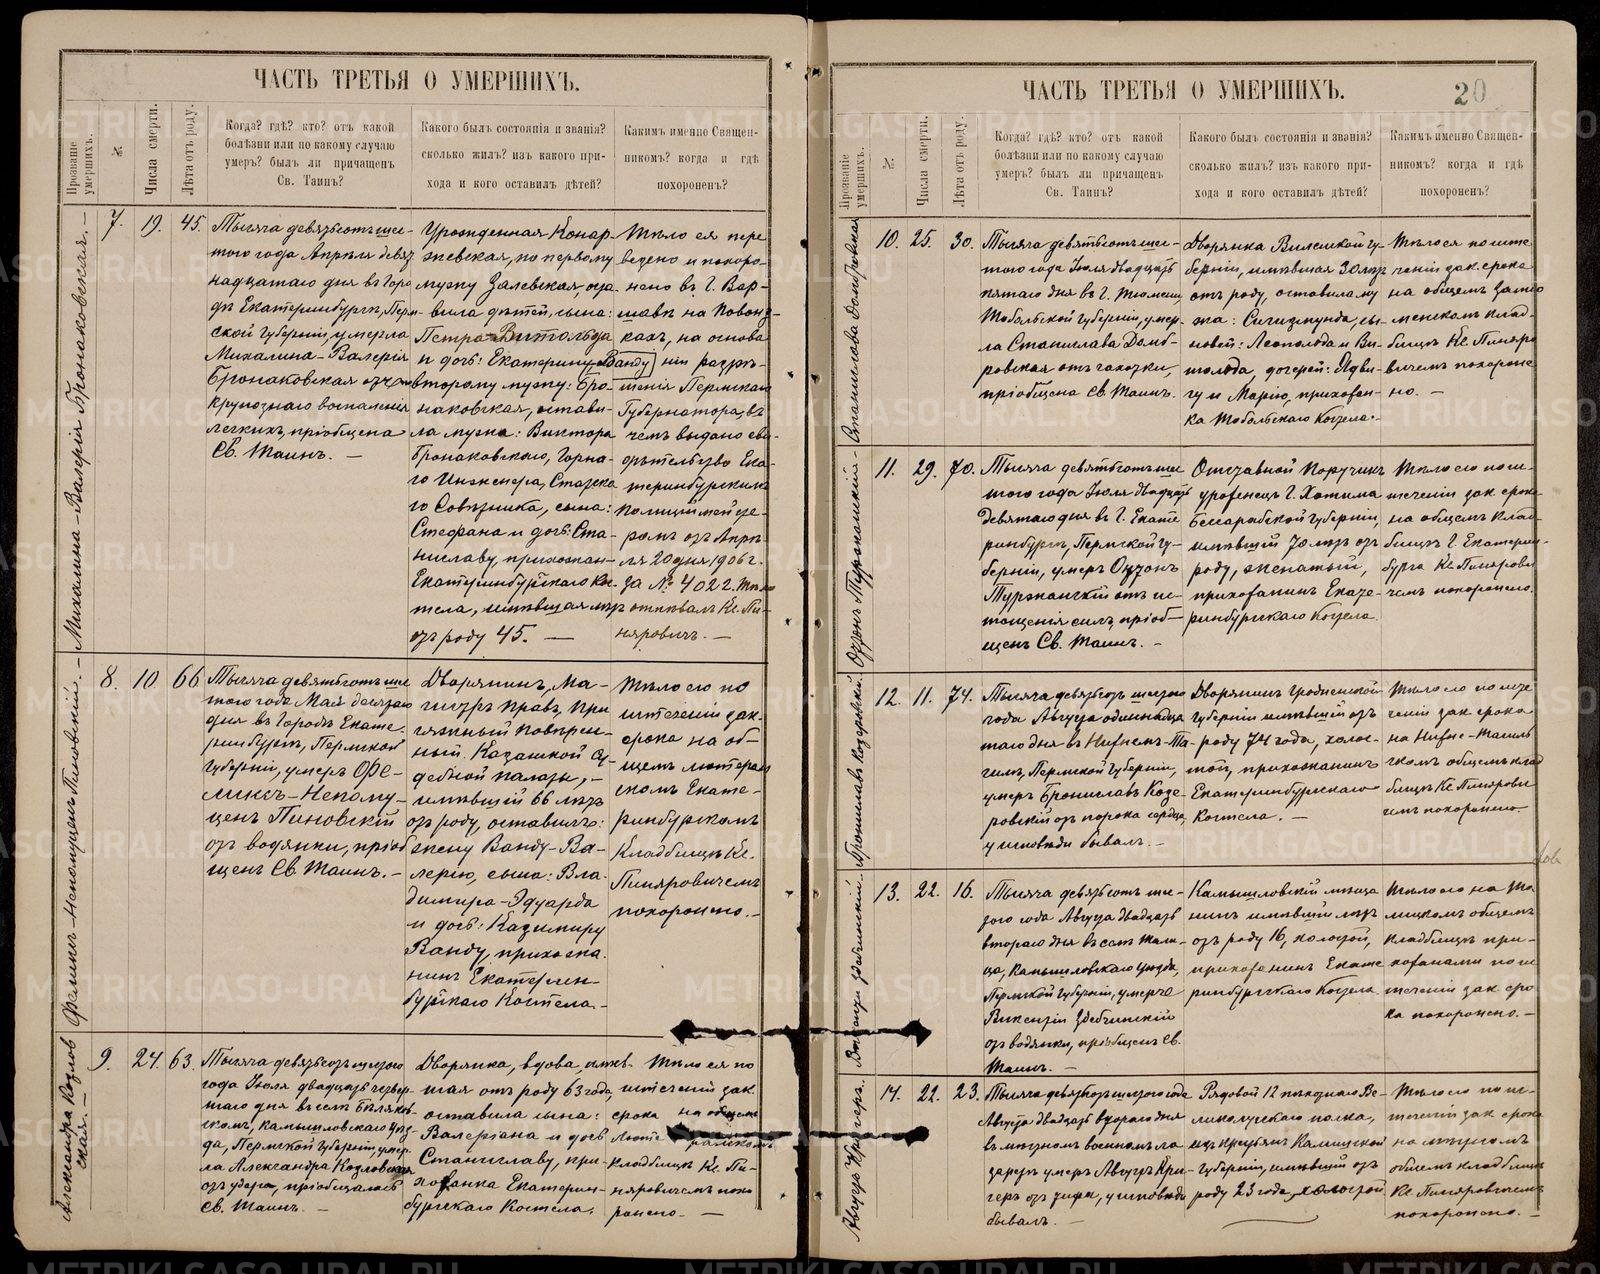 ЧАСТЬ ТРЕТЬЯ О УМЕРШИХЪ.
Прозваніе умершихъ.
№
Числа смерти.
Лѣта отъ роду.
Когда? гдѣ? кто? отъ какой
болѣзни или по какому случаю
умеръ? былъ ли причащенъ
Св. Таинъ?
Какого былъ состоянія и званія?
сколько жилъ? изъ какого при-
хода и кого оставилъ дѣтей?
Какимъ именно Священ-
никомъ? когда и гдѣ
похороненъ?
Михалина-Валерія Бронаковская.
7.
19.
45.
Тысяча девятьсотъ шес-
таго года Апрѣля девят
надцатаго дня въ горо
дѣ Екатеринбургѣ, Перм-
ской губерніи, умерла
Михалина-Валерія
Бронаковская отъ
крупознаго воспаленія
легкихъ, пріобщена
Св. Таинъ. —
Урожденная Конар-
жевская, по первому
мужу Залевская, оста
вила дѣтей, сына:
Петра-Витольда
и дочь: Екатерину Ванду
второму мужу: Бро-
наковская, остави-
ла мужа: Виктора
Бронаковскаго, Горна-
го Инженера, Статска
го Совѣтника, сына:
Стефана и дочь: Ста-
ниславу, прихожан-
Екатеринбургскаго Кос-
тела, имѣвшая лѣт
отъ роду 45. —
Тѣло ея пере
везено и похоро-
нено въ г. Вар-
шавѣ на Повонз-
кахъ, на основа
ніи разрѣ-
шенія Пермскаго
Губернатора, въ
чемъ выдано сви-
дѣтельство Ека-
теринбургскимъ
Полиціймейсте-
ромъ отъ Апрѣ-
ля 20 дня 1906 г.
за № 4022. Тѣло
отпѣвалъ Кс. Пи-
няровичъ. —
Феликсъ-Непомуценъ Пиновскій.
8.
10
66
Тысяча девятьсотъ шес
таго года Мая десятаго
дня въ городѣ Екате-
ринбургѣ, Пермской
губерніи, умеръ Фе-
ликсъ-Непому-
ценъ Пиновскій
отъ водянки, пріоб
щенъ Св. Таинъ. —
Дворянинъ, Ма-
гистръ правъ, При
сяжный повѣрен-
ный Казанской су-
дебной палаты, —
имѣвшій 66 лѣтъ
отъ роду, оставилъ:
жену Ванду-Ва-
лерію, сына: Вла-
димира-Эдуарда
и дочь: Казимиру
Ванду, прихожа-
нинъ Екатерин-
бургскаго Костела —
Тѣло его по
истеченіи зак.
срока на об-
щемъ лютеран
скомъ Екате-
ринбургскомъ
кладбищѣ Кс.
Пиняровичемъ
похоронено. —
Александра Козлов
ская. —
9.
24.
63.
Тысяча девятьсотъ шестого
года Іюля двадцать четвер-
таго дня въ селѣ Бѣляков-
скомъ, Камышловскаго уѣз-
да, Пермской губерніи, умер-
ла Александра Козловская
отъ удара, пріобщалась
Св. Таинъ. —
Дворянка, вдова, имѣв-
шая отъ роду 63 года,
оставила сына:
Валеріана и дочь
Станиславу, при-
хожанка Екатерин-
бургскаго Костела.
Тѣло ея по
истеченіи зак.
срока на общемъ
люте ранскомъ
кладбищѣ Кс. Пи-
няровичемъ похо
ронено. —
ЧАСТЬ ТРЕТЬЯ О УМЕРШИХЪ.
20
Прозваніе умершихъ.
№
Числа смерти.
Лѣта отъ роду.
Когда? гдѣ? кто? отъ какой
болѣзни или по какому случаю
умеръ? былъ ли причащенъ
Св. Таинъ?
Какого былъ состоянія и званія?
сколько жилъ? изъ какого при-
хода и кого оставилъ дѣтей?
Какимъ именно Священ-
никомъ? когда и гдѣ
похороненъ?
Станислава Домбровская
10.
25.
30.
Тысяча девятьсотъ шес-
того года Іюля двадцать
пятаго дня въ г. Тюмени,
Тобольской губерніи, умер-
ла Станислава Домб-
ровская отъ чахотки,
пріобщена Св. Таинъ.
Дворянка Виленской гу-
берніи, имѣвшая 30 лѣт
отъ роду, оставила му
жа: Сигизмунда, сы-
новей: Леопольда и Ви-
тольда, дочерей: Ядви-
гу и Марію, прихожан-
ка Тобольскаго Костела.
Тѣло ея по исте
ченіи зак. срока
на общемъ
менскомъ клад-
бищѣ Кс. Пиняро
вичемъ похороне
но. —
Антонъ Туржанскій
11.
29.
70.
Тысяча девятьсотъ шес
таго года Іюля двадцать
девятаго дня въ г. Екате
ринбургѣ, Пермской гу-
берніи, умеръ Антонъ
Туржанскій отъ ис-
тощенія силъ, пріоб-
щенъ Св. Таинъ. —
Отставной Поручикъ
уроженецъ г. Хотима
Бессарабской губерніи,
имѣвшій 70 лѣтъ отъ
роду, женатый,
прихожанинъ Екате-
ринбургскаго Костела.
Тѣло его по ис-
теченіи зак. срока
на общемъ клад-
бищѣ г. Екатерин-
бурга Кс. Пинярови
чемъ похоронено.
Брониславъ Козеровскій.
12.
11.
74.
Тысяча девятьсотъ шестого
года Августа одиннадца
таго дня въ Нижнемъ-Та-
гилѣ, Пермской губерніи,
умеръ Брониславъ Козе-
ровскій отъ порока сердца,
у исповѣди бывалъ. —
Дворянинъ Гродненской
губерніи имѣвшій отъ
роду 74 года, холос-
той, прихожанинъ
Екатеринбургскаго
Костела. —
Тѣло его по исте
ченіи зак. срока
на Нижне-Тагиль
скомъ общемъ клад
бищѣ Кс. Пинярови
чемъ похоронено
13.
22.
16.
Тысяча девятьсотъ шес-
того года Августа двадцать
второго дня въ селѣ Тали-
ца, Камышловскаго уѣзда,
Пермской губерніи, умеръ
Викентій Здебчинскій
отъ водянки, пріобщенъ Св.
Таинъ. —
Камышловскій мѣща
нинъ имѣвшій лѣт
отъ роду 16, холостой,
прихожанинъ Екате
ринбургскаго Костела
Тѣло его на Та
лицкомъ общемъ
кладбищѣ при-
хожанами по ис
теченіи зак. сро
ка похоронено. —
Августъ Кригеръ.
14.
22.
23.
Тысяча девятьсотъ шестого года
Августа двадцать второго дня
въ мѣстномъ военномъ ла
заретѣ умеръ Августъ Кри-
геръ отъ тифа, у исповѣди
бывалъ. —
Рядовой 12 пѣхотнаго Ве-
ликолуцкаго полка,
изъ крестьянъ Калишской
губерніи, имѣвшій отъ
роду 23 года, холостой
Тѣло его по ис-
теченіи зак. срока
на мѣстномъ
общемъ кладбищѣ
Кс. Пиняровичемъ
похоронено. —
METRIKI.GASO-URAL.RU